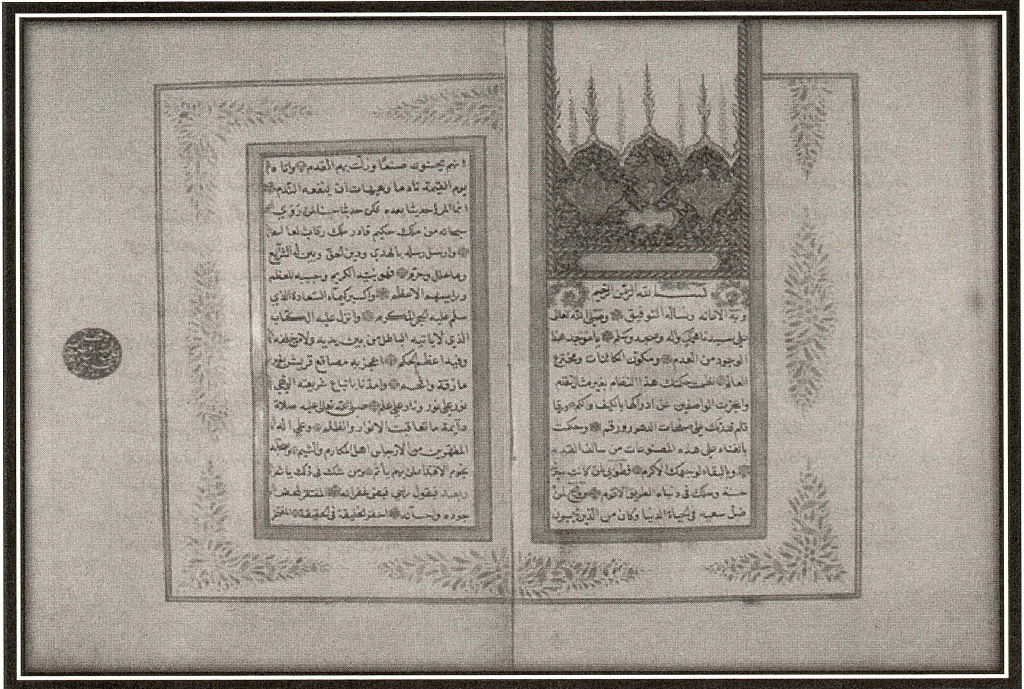 بسم الله الرحمن الرحيم
وبه الاعانه ونساله التوفيق وصلى الله تعالى
على سيدنا محمد وآله وصحبه وسلم يا موجد هذا
الوجود من العدم ومكون الكائنات ومخترع
العالم حكمتك هذا النظام بغير مثال تقدم
واعجزت الواصفين عن ادراكها بكيف وكم
قلم قدرتك على صفحات الدهور ورقم وحكمت
بالفناء على هذه المصنوعات من سالف القدم
وبالبقاء لوجهك الاكرم فطوبى لمن كانت
حسنه وسلك في دنياه الطريق الاقوم
ضل سعيه في الحياة الدنيا وكان من الذين يحسبون
انهم يحسنون صنعا وزلت بهم القدم واتاه
يوم القيمة نادما وهيهات ان ينفعه الندم
انما المرء حديثا بعده فكن حديثا حسنا لمن روى
سبحانه من ملك حكيم قادر ملك رقاب
وارسل رسله بالهدى ودين الحق وبين له الشرايع
وما حلل وحرم فهو نبيه الكريم وحبيبه المعظم
ورئيسهم الاعظم واكسير كيمياء السعادة الذي
سلم عليه الحجر المكرم وانزل عليه الكتاب
الذي لا ياتيه الباطل من بين يديه ولا من خلفه
وفيه اعظم الحكم اعجز به مصاقع قريش
وامدنا باتباع شريعته
نور على نور ونار على علم صلى الله تعالى عليه صلاة
دايمة ما تعاقبت الانوار والظلم وعلى اله
المطهرين من الارجاس اهل المكارم والشيم وصحبه
نجوم الاهتداء من بهم يأتم ومن شك في ذلك ياثم
وبعد فيقول راجي فيض غفرانه المفتقر لمحض
جوده واحسانه احقر الخليقة في الحقيقة